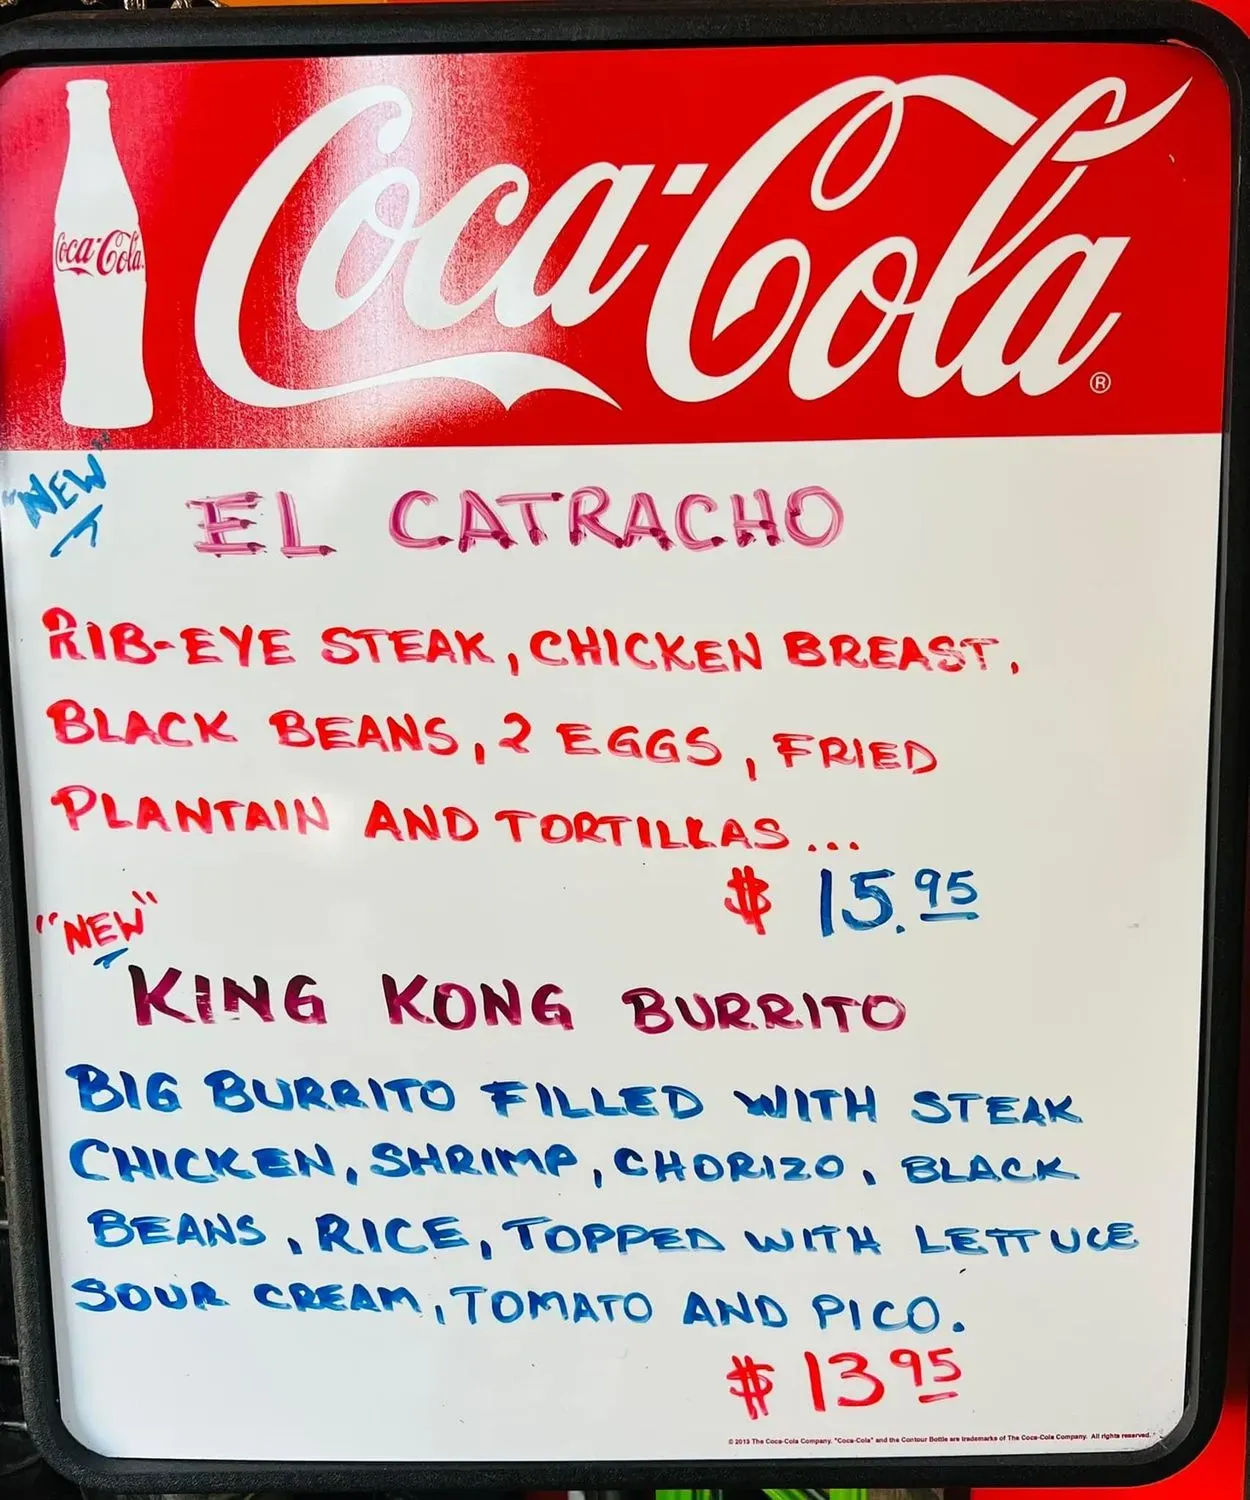 Coca-Cola
Coca-Cola®
"NEW"
EL CATRACHO
RIB-EYE STEAK, CHICKEN BREAST,
BLACK BEANS, 2 EGGS, FRIED
PLANTAIN AND TORTILLAS...
$ 15.95
"NEW"
KING KONG BURRITO
BIG BURRITO FILLED WITH STEAK
CHICKEN, SHRIMP, CHORIZO, BLACK
BEANS, RICE, TOPPED WITH LETTUCE
SOUR CREAM, TOMATO AND PICO.
$ 13 95
© 2013 The Coca-Cola Company. "Coca-Cola" and the Contour Bottle are trademarks of The Coca-Cola Company. All rights reserved.